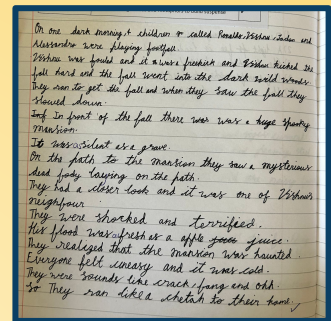 On one dark morning 4 children or called Ronaldo, Vishnu, Jadan and
Alessandro were playing football.
Vishnu was fouled and it a was a freekirk and Vishnu kicked the
ball hard and the ball went into the dark wild woods.
They ran to get the ball and when they saw the ball they
slowed down.
In front of the ball there was a huge spooky
mansion.
It was silent as a grave.
On the path to the mansion they saw a mysterious
dead body laying on the path.
They had a closer look and it was one of Vishnu's
neighbour.
They were shocked and terrified.
His blood was fresh as a apple juice.
They realized that the mansion was haunted.
Everyone felt uneasy and it was cold.
They were sounds like crack, bang and ohh.
So They ran like a chetah to their home.